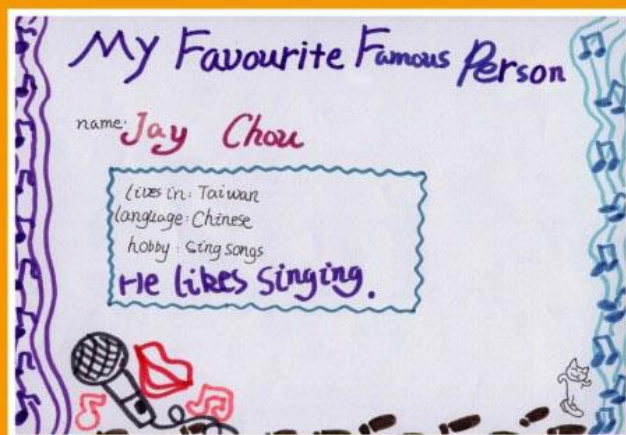 My Favourite Famous Person
name: Jay Chou
lives in: Taiwan
language: Chinese
hobby: sing songs
He likes singing.